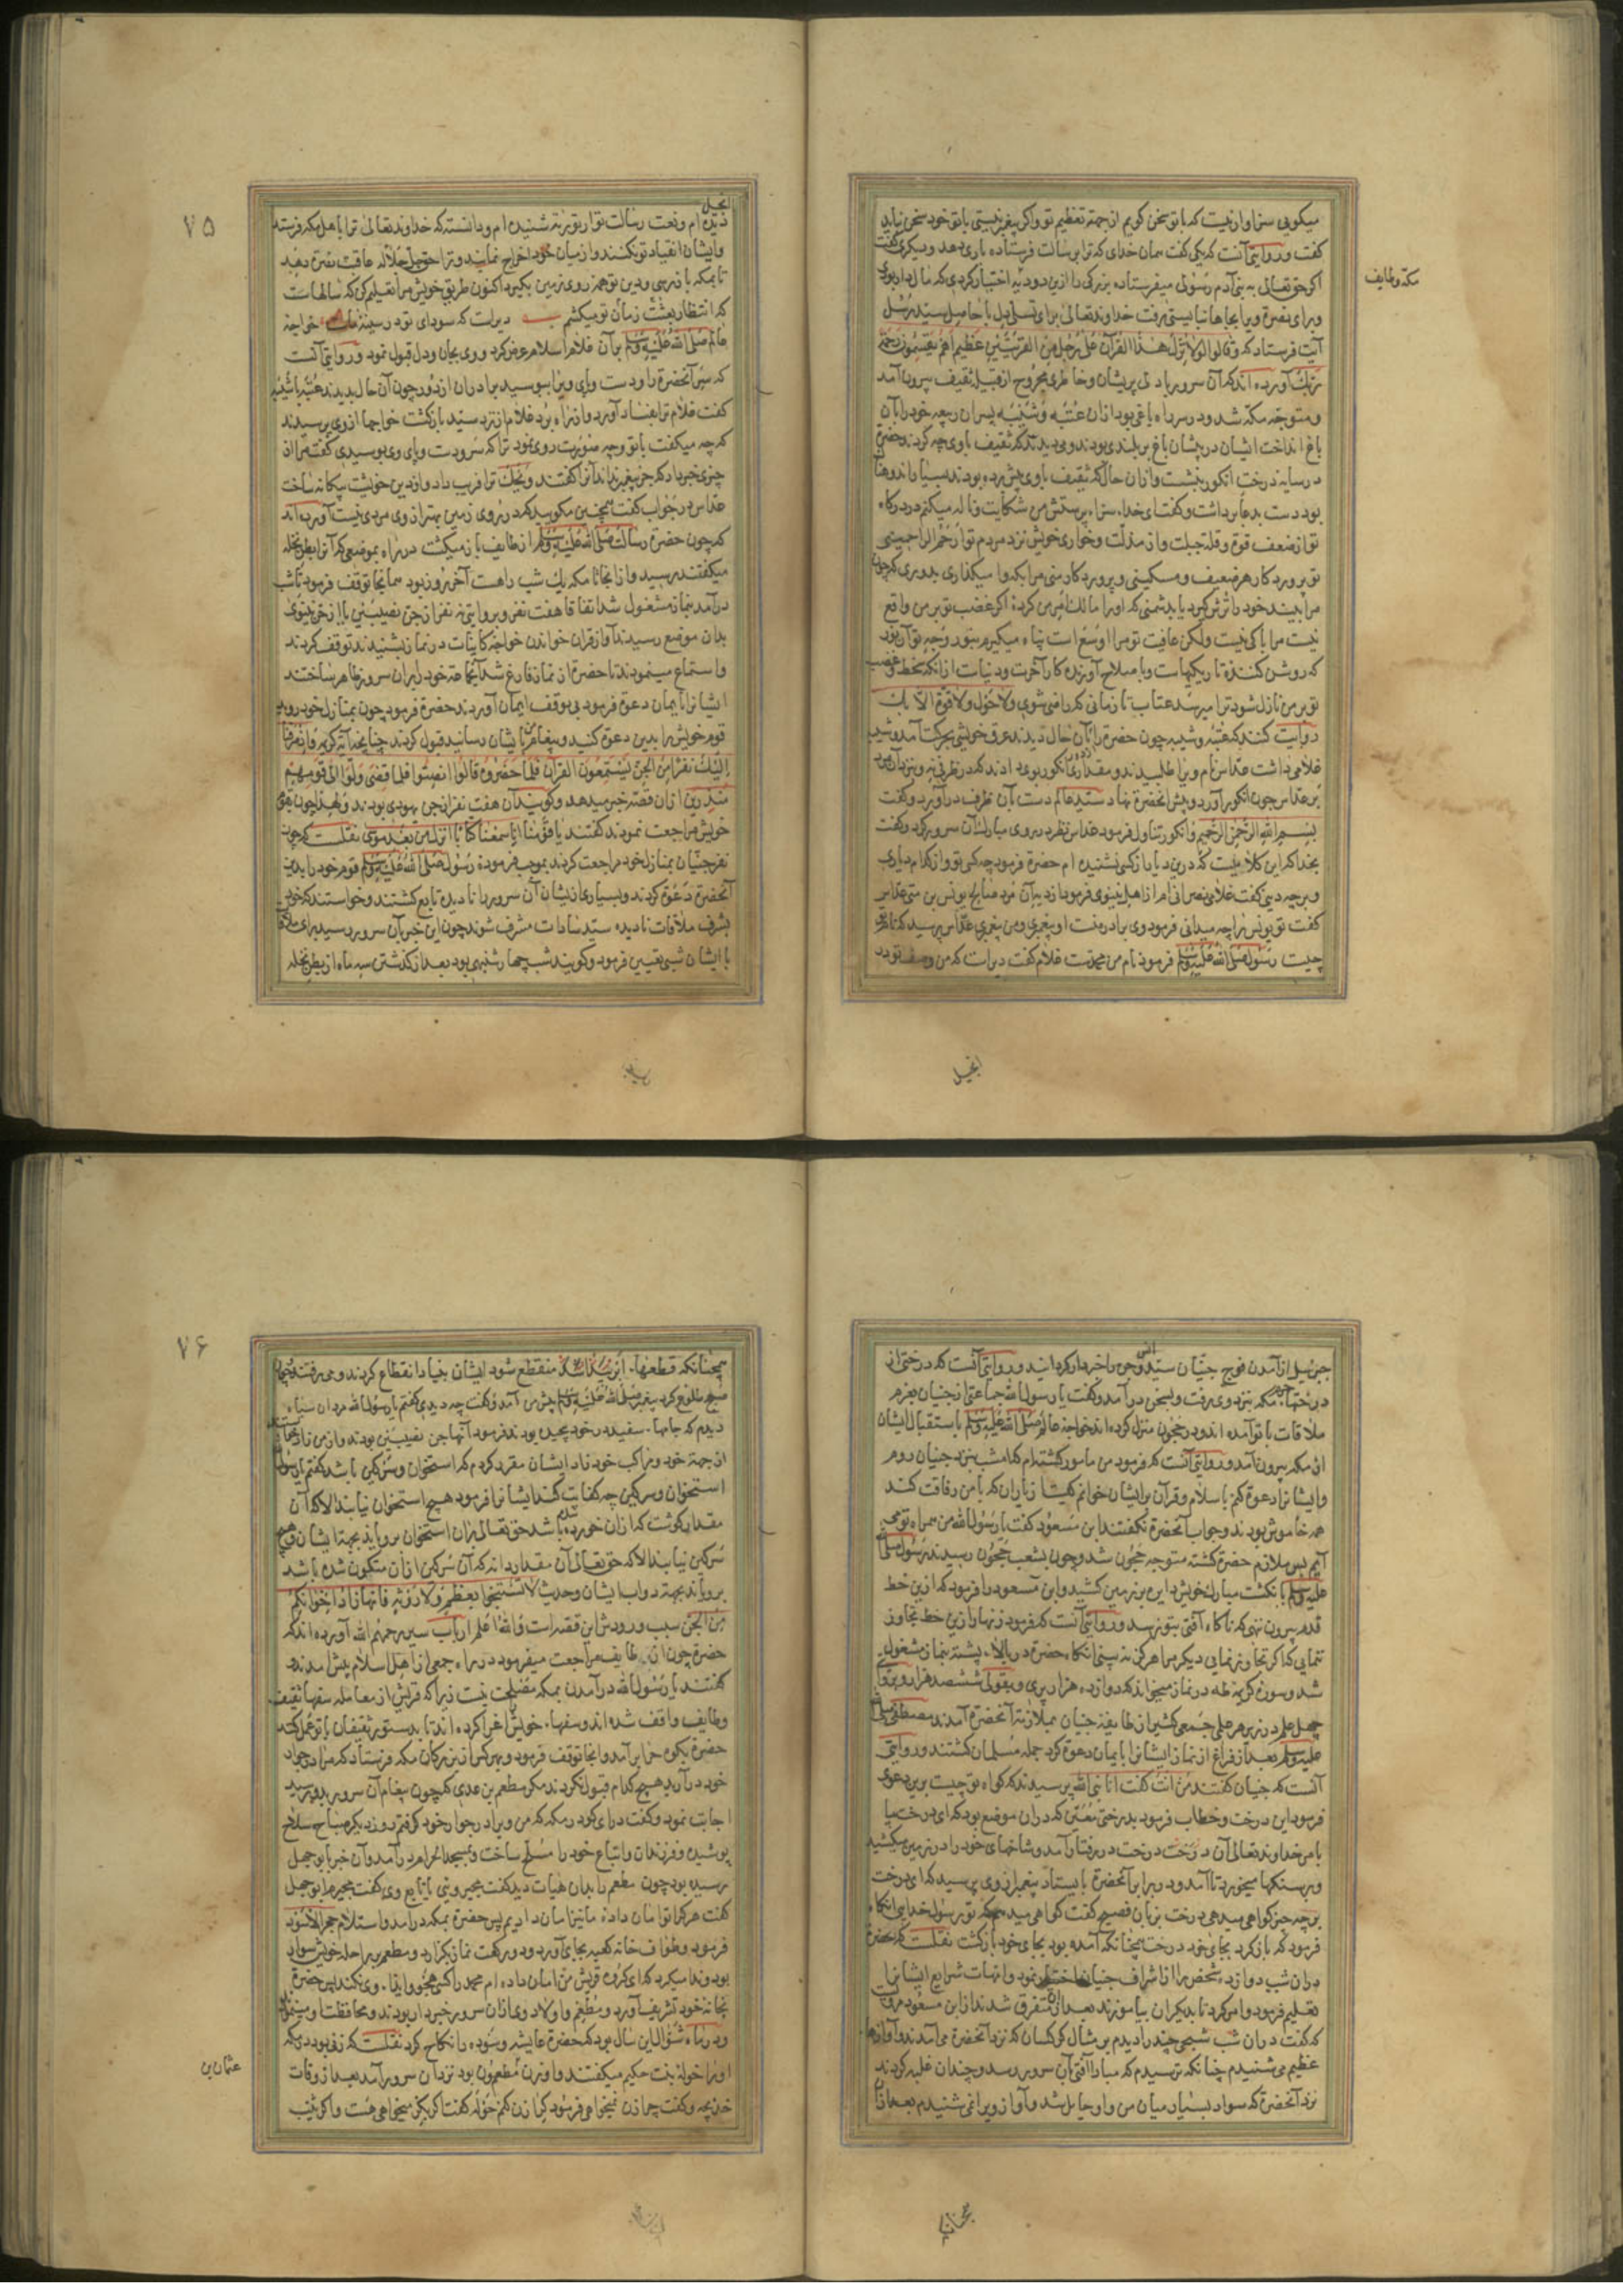 میکویی سزاوار نیست که با تو سخن کویم از جهة تعظیم تو و اکر پیغمبر نیستی با تو خود سخن نباید
کفت و در روایتی آنست که یکی کفت همان خدای که ترا برسالت فرستاده یاری دهد و دیکری کفت
اکر حق تعالی به بنی آدم رسولی میفرستاده بزرکی را ازین دو دیه اختیار کردی که مال دار بودی
و برای نصرة ویرا بجاها نبایستی رفت خداوند تعالی برای تسلی دل با حاصل سید رسل
آیت فرستاد که وقالوا لولا نزل هذا القرآن علی رجل من القریتین عظیم اهم یقسمون رحمة
ربک آورده اند که آن سرور با دلی پریشان و خاطری مجروح از قبیله ثقیف بیرون آمد
و متوجه مکه شد و در سر راه باغی بود ازان عتبه و شیبه پسران ربیعه خود را بآن
باغ انداخت ایشان در پیشان باغ بر بلندی بودند و می دیدند که ثقیف با وی چه کردند حضرة
در سایه درخت انکور بنشست و ازان حال که ثقیف با وی پیش برده بودند بسیار اندوهناک
بود دست بدعا برداشت و کفت ای خداء سزاء پرستش من شکایت و ناله میکنم در درکاه
تو از ضعف قوة و قلة حیلت و از مذلت و خواری خویش نزد مردم تو ارحم الراحمینی
تو پرورد کار هر ضعیف و مسکینی و پرورد کار منی مرا بکه وا میکذاری بدوری که چون
مرا بیند خود را ترش کیرد یا بدشمنی که او را مالک امر من کردۀ اکر غضب تو بر من واقع
نیست مرا باکی نیست ولکن عافیت تو مرا اوسع است پناه میکیرم بنور وجه تو آن نور
که روشن کنندۀ تاریکیهاست و با صلاح آورنده کار آخرت و دنیاست ازانکه سخط و غضب
تو بر من نازل شود ترا میرسد عتاب تا زمانی که راضی شوی ولا حول ولا قوة الا بک
روایت کنند که عتبه و شیبه چون حضرة را بآن حال دیدند عرق خویشی بحرکت آمد و شیبه
غلامی داشت عداس نام ویرا طلبیدند و مقداری انکور بوی دادند که در ظرفی نه و نزد آن مرد
بر عداس چون انکور آورد و پیش آنحضرة نهاد سید عالم دست بآن ظرف در آورد و کفت
بسم الله الرحمن الرحیم و انکور تناول فرمود عداس نظر در روی مبارک آن سرور کرد و کفت
بخدا که این کلامیست که درین دیار از کسی نشنیده ام حضرة فرمود چه کسی تو و از کدام دیاری
و بر چه دینی کفت غلامی نصرانی ام از اهل نینوی فرمود از دیه آن مرد صالح یونس بن متی عداس
کفت تو یونس را چه میدانی فرمود وی برادر منست او پیغمبری و من پیغمبری عداس پرسید که نام تو
چیست رسول صلی الله علیه وسلم فرمود نام من محمدست غلام کفت دیراست که من وصف تو در
مکه و طایف
انجیل
انجیل
دیده ام و نعت رسالت تو از توریة شنیده ام و دانسته که خداوند تعالی ترا باهل مکه فرستد
و ایشان انقیاد تو نکنند و از میان خود اخراج نمایند و ترا حق جل جلاله عاقبت نصرة دهد
تا بمکه باز رسی و دین تو همه روی زمین بکیرد اکنون طریق خویش مرا تعلیم کن که سالهاست
که انتظار بعثت زمان تو میکشم بیت دیراست که سودای تو در سینۀ ماست خواجۀ
عالم صلی الله علیه وسلم بر آن غلام اسلام عرض کرد و وی بجان و دل قبول نمود و روایتی آنست
که سر آنحضرة را و دست و پای ویرا بوسید برادران از دور چون آن حال بدیدند عتبه با شیبه
کفت غلام ترا بفساد آورد و از راه برد غلام از نزد سید بازکشت خواجها از وی پرسیدند
که چه میکفت با تو و چه صورت روی نمود ترا که سر و دست و پای وی بوسیدی کفت مرا از
چیزی خبر داد که جز پیغمبر نداند آنرا کفتند ویحک ترا فریب داد و از دین خویشت بیکانه ساخت
عداس در جواب کفت همچنین مکویید که در روی زمین بهتر از وی مردی نیست آورده اند
که چون حضرة رسالت صلی الله علیه وسلم از طایف باز میکشت در راه بموضعی که آنرا بطن نخله
میکفتند رسید و از انجا تا مکه یک شب راهست آخر روز بود همانجا توقف فرمود تا شب
درآمد بنماز مشغول شد اتفاقا هفت نفر و بروایتی نه نفر از جن نصیبین یا از جن نینوی
بدان موضع رسیدند آواز قرآن خواندن خواجه کاینات در نماز بشنیدند توقف کردند
و استماع مینمودند تا حضرة از نماز فارغ شد آنکاه خود را بران سرور ظاهر ساختند
ایشانرا بایمان دعوة فرمود بی توقف ایمان آوردند حضرة فرمود چون بمنازل خود روید
قوم خویش را بدین دعوة کنید و پیغام من بایشان رسانید قبول کردند چنانچه آیة کریمه واذ صرفنا
الیک نفرا من الجن یستمعون القرآن فلما حضروه قالوا انصتوا فلما قضی ولوا الی قومهم
منذرین ازان قصه خبر میدهد و کویند آن هفت نفر از جن یهودی بودند و لهذا چون بقوم
خویش مراجعت نمودند کفتند یا قومنا انا سمعنا کتابا انزل من بعد موسی نقلست که چون
نفر جنیان بمنازل خود مراجعت کردند بموجب فرمودۀ رسول صلی الله علیه وسلم قوم خود را بدین
آنحضرة دعوة کردند و بسیاری از ایشان آن سرور را نادیده تابع کشتند و خواستند که خود
بشرف ملاقات نادیده سید سادات مشرف شوند چون این خبر بآن سرور رسید برای ملاقات
با ایشان شبی تعیین فرمود و کویند شب چهارشنبهی بود بعد از کذشتن سه ماه از بطن نخله
۷۵
جبرئیل از آمدن فوج جنیان سید انس وجن را خبردار کردانید و در روایتی آنست که درختی از
درختهای مکه بنزد وی رفت و بسخن درآمد و کفت یا رسول الله جماعتی از جنیان بعزم
ملاقات با تو آمده اند و در حجون منزل کرده اند خواجه عالم صلی الله علیه وسلم باستقبال ایشان
از مکه بیرون آمد و در روایتی آنست که فرمود من مامور کشته ام که امشب بنزد جنیان روم
و ایشانرا دعوة کنم باسلام و قرآن بر ایشان خوانم کیست از یاران که با من رفاقت کند
همه خاموش بودند و جواب آنحضرة نکفتند ابن مسعود کفت یا رسول الله من همراه تو می
آیم پس ملازم حضرة کشته متوجه حجون شد و چون بشعب حجون رسیدند رسول صلی الله
علیه وسلم بانکشت مبارک خویش دایره بر زمین کشید و ابن مسعود را فرمود که ازین خط
قدم بیرون ننهی که ناکاه آفتی بتو نرسد و در روایتی آنست که فرمود زنهار ازین خط تجاوز
ننمایی که اکر تجاوز نمایی دیکر مرا هرکز نه بینی آنکاه حضرة در بالاء پشته بنماز مشغول
شد و سورۀ کریمۀ طه در نماز میخواند که دوازده هزار پری و بقولی ششصد هزار و بروایتی
چهل علم در زیر هر علمی جمعی کثیر از طایفۀ جنیان بملازمة آنحضرة آمدند مصطفی صلی الله
علیه وسلم بعد از فراغ از نماز ایشانرا بایمان دعوة کرد جمله مسلمان کشتند و در روایتی
آنست که جنیان کفتند من انت کفت انا نبی الله پرسیدند که کواه تو چیست برین دعوی
فرمود این درخت و خطاب فرمود بدرختی معین که دران موضع بود که ای درخت بیا
بامر خداوند تعالی آن درخت در رفتار آمد و شاخهای خود را در زمین میکشید
و بر سنکها میخورد تا آمد و در برابر آنحضرة بایستاد پیغمبر از وی پرسید که ای درخت
بر چه چیز کواهی میدهی درخت بزبان فصیح کفت کواهی میدهم که تو رسول خدایی آنکاه
فرمود که باز کرد بجای خود درخت همچنانکه آمده بود بجای خود بازکشت نقلست که حضرة
دران شب دوازده شخص را از اشراف جنیان اختیار نمود و امهات شرایع ایشانرا
تعلیم فرمود و امر کرد تا بدیکران بیاموزند بعد ازان متفرق شدند از ابن مسعود مرویست
که کفت دران شب شبحی چند را دیدم بر مثال کرکسان که نزد آنحضرة می آمدند و آوازهای
عظیم می شنیدم چنانکه ترسیدم که مبادا آفتی بآن سرور رسد و چندان غلبه کردند
نزد آنحضرة که سواد بسیار میان من و او حایل شد و آواز ویرا نمی شنیدم بعد ازان
همچنانکه
همچنانکه قطعهاء ابر منقطع شود ایشان بنیاد انقطاع کردند و می رفتند چون
صبح طلوع کرد پیغمبر صلی الله علیه وسلم پیش من آمد و کفت چه دیدی کفتم یا رسول الله مردان سیاه
دیدم که جامهاء سفید در خود پیچیده بودند فرمود آنها جن نصیبین بودند و از من زاد میخواستند
از جهة خود و مراکب خود زاد ایشان مقرر کردم که استخوان و سرکین باشد کفتم یا رسول الله
استخوان و سرکین چه کفایت کند ایشانرا فرمود هیچ استخوان نیابند الا که آن
مقدار کوشت که ازان خورده شده باشد حق تعالی بران استخوان برویاند بجهة ایشان و هیچ
سرکین نیابند الا که حق تعالی آن مقدار دانه که آن سرکین ازان متکون شده باشد
برویاند بجهة دواب ایشان و حدیث لا تستنجوا بعظم ولا روثة فانها زاد اخوانکم
من الجن سبب ورودش این قصه است والله اعلم ارباب سیر رحمهم الله آورده اند که
حضرة چون از طایف مراجعت میفرمود در راه جمعی از اهل اسلام پیش آمدند و
کفتند یا رسول الله درآمدن بمکه مصلحت نیست زیرا که قریش از معامله سفهاء ثقیف
و طایف واقف شده اند و سفهاء خویش را اغرا کرده اند تا بدستور ثقفیان با تو عمل کنند
حضرة بکوه حرا برآمد و آنجا توقف فرمود و بهر کس از بزرکان مکه فرستاد که مرا در جوار
خود درآرید هیچ کدام قبول نکردند مکر مطعم بن عدی که چون پیغام آن سرور بدو رسید
اجابت نمود و کفت درای کو در مکه که من ویرا در جوار خود کرفتم روز دیکر صباح سلاح
پوشیده و فرزندان و اتباع خود را مسلح ساخت و بمسجد الحرام درآمد و آن خبر بابوجهل
رسیده بود چون مطعم را بدان هیات دید کفت مجیری یا تابع وی کفت مجیرم ابوجهل
کفت هر که را تو امان دادۀ ما نیز امان دادیم پس حضرة بمکه درآمد و استلام حجر الاسود
فرمود و طواف خانه کعبه بجای آورد و دو رکعت نماز بکزارد و مطعم بر راحله خویش سوار
بود و ندا میکرد که ای کروه قریش من امان داده ام محمد را کسی هجو و ایذاء وی نکند پس حضرة
بخانه خود تشریف آورد و مطعم و اولاد وی ازان سرور خبردار بودند و محافظت او مینمودند
و در ماه شوال این سال بود که حضرة عایشه و سوده را نکاح کرد نقلست که زنی بود در مکه
او را خوله بنت حکیم میکفتند و او زن عثمان بن مظعون بود نزد آن سرور آمد بعد از وفات
خدیجه و کفت چرا زن نمیخواهی فرمود کرا زن کنم خوله کفت اکر بکر میخواهی هست و اکر ثیب
عثمان بن
۷۶